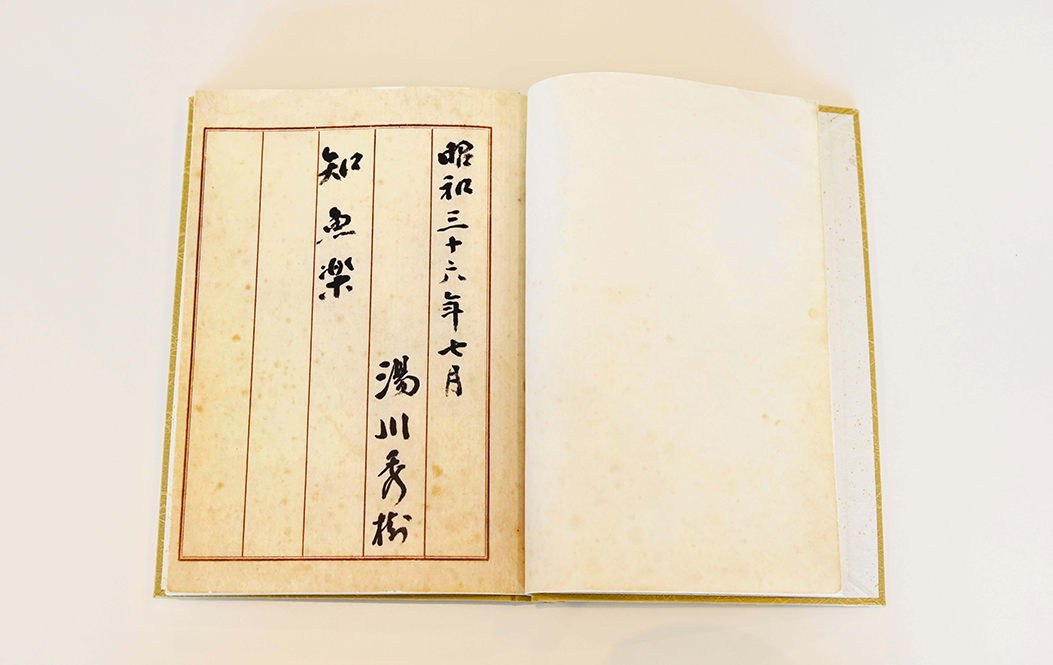 昭和三十六年七月
湯川秀樹
知魚楽